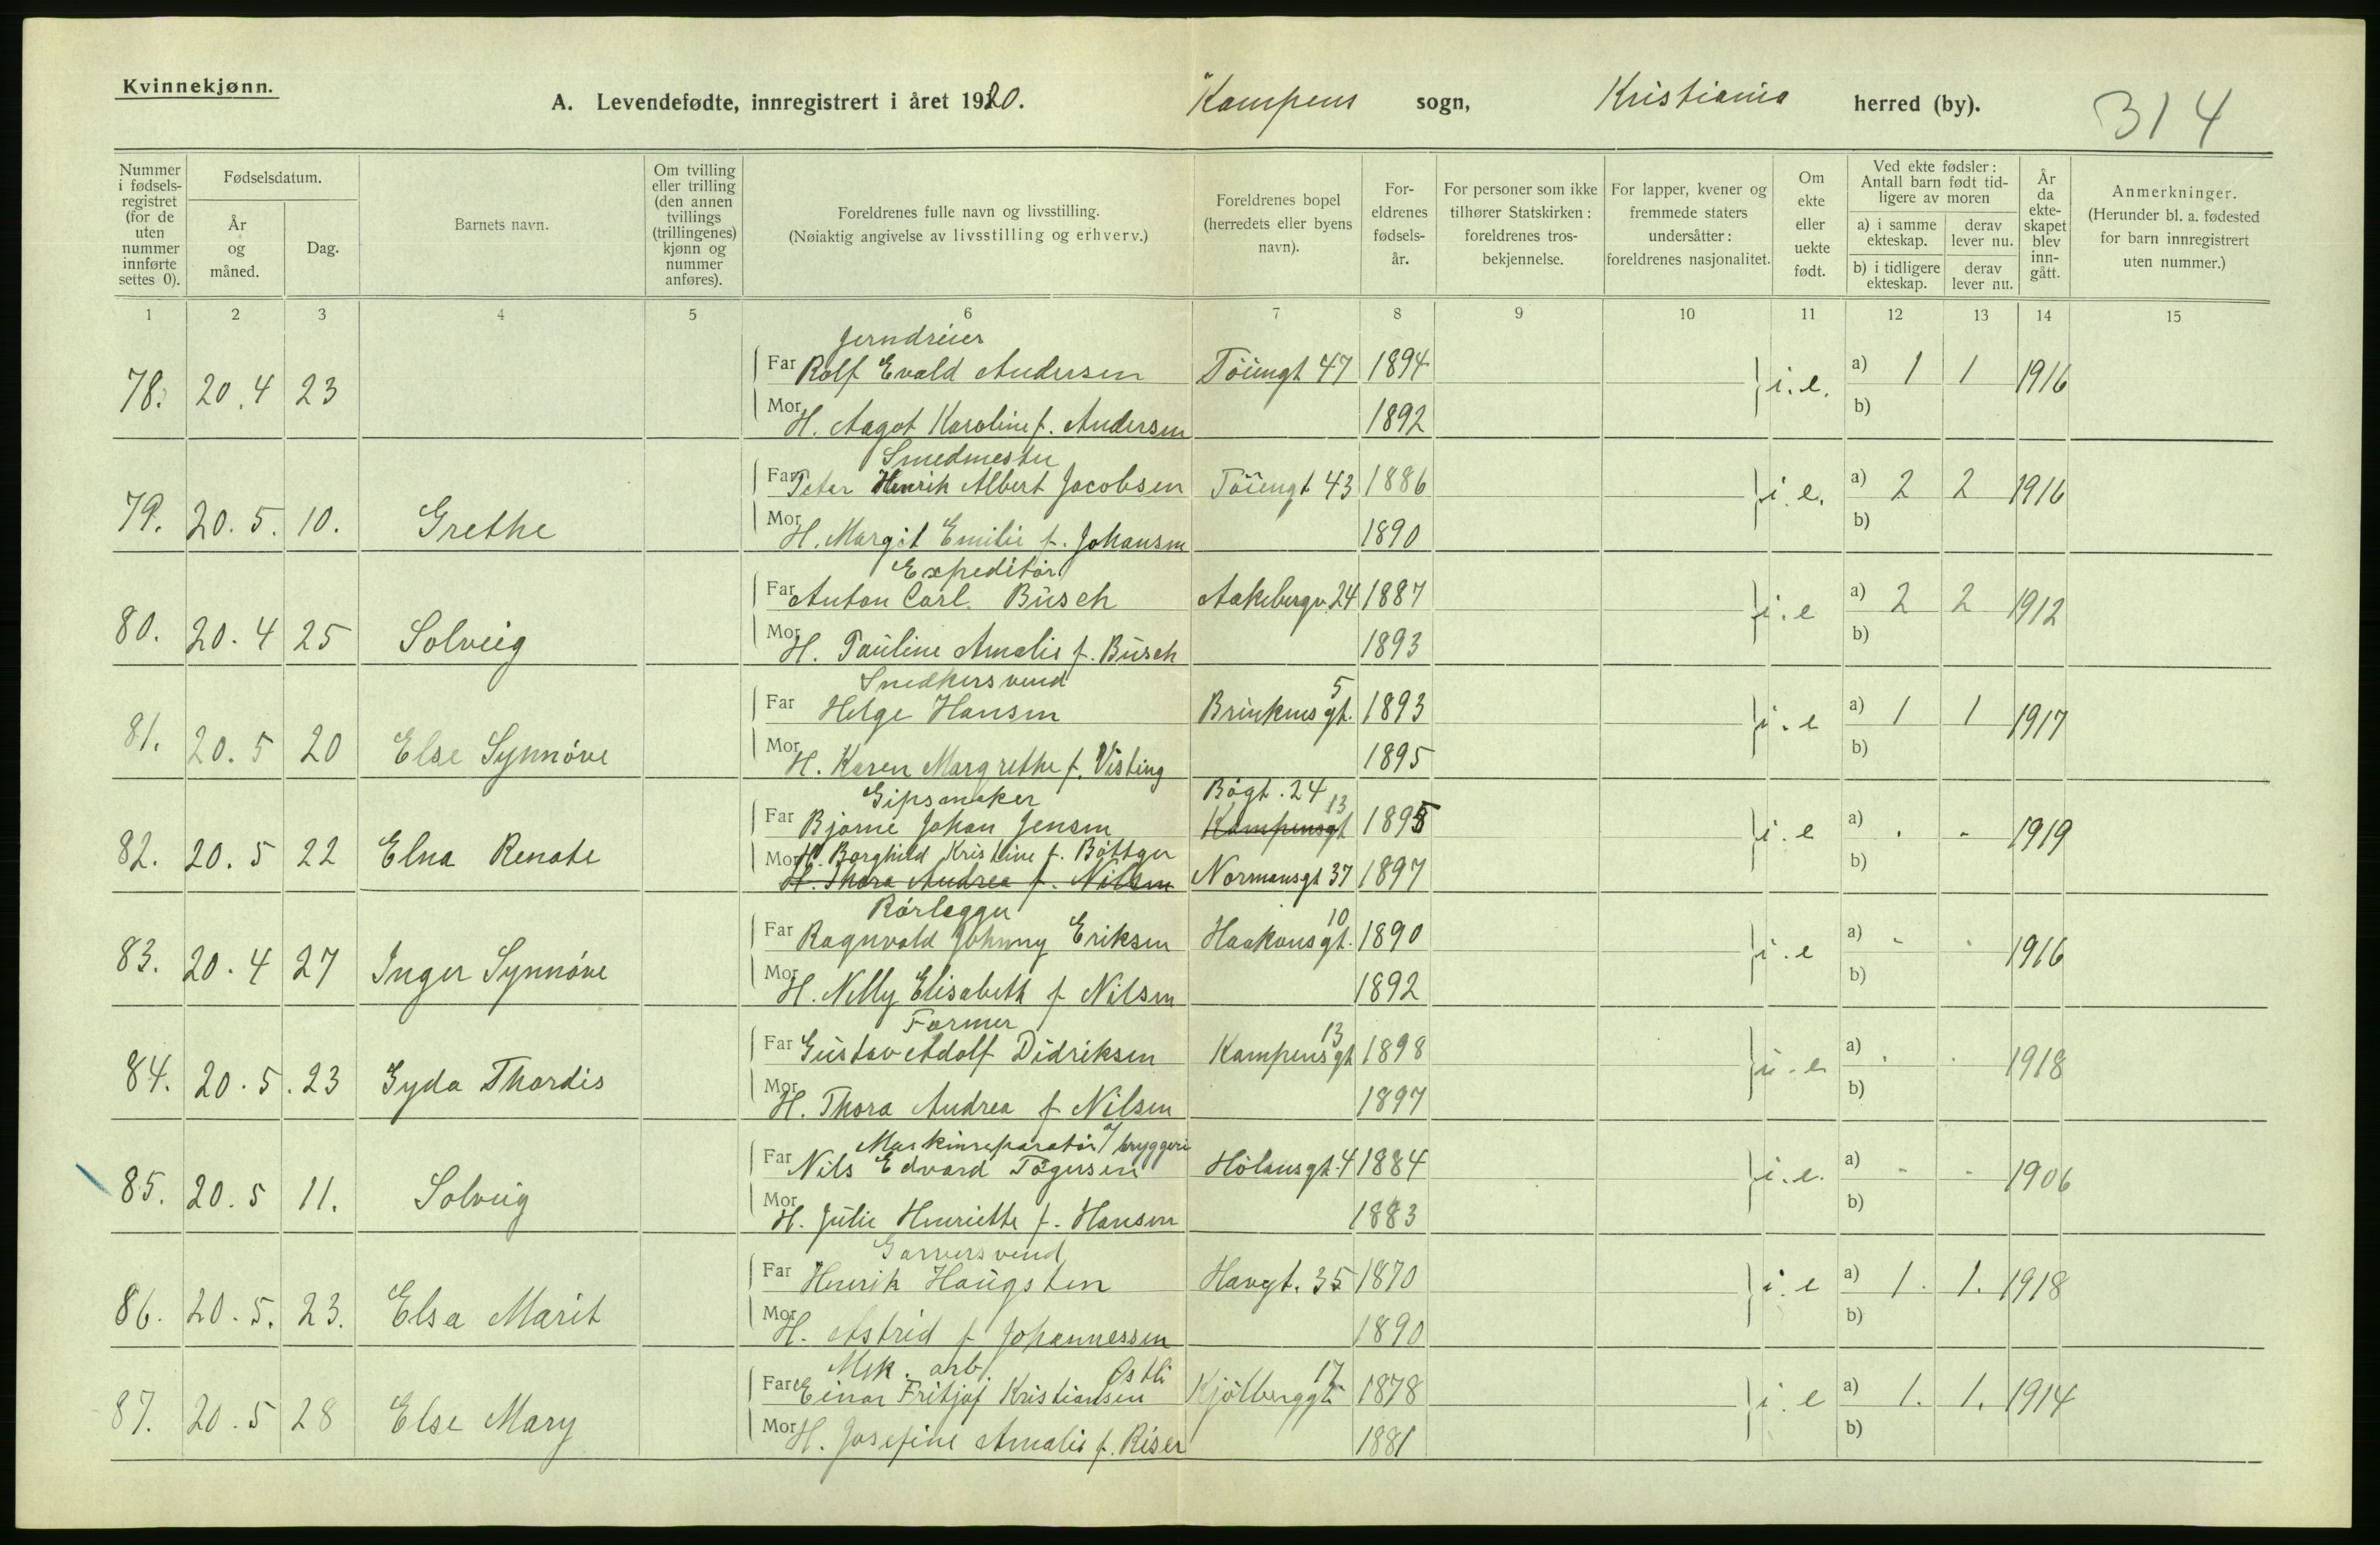 Kvinnekjønn.
A. Levendefødte, innregistrert i året 1920. Kampens sogn, Kristiania herred (by). 314
Nummer i fødselsregistret (for de uten nummer innførte settes 0).
Fødselsdatum.
År og måned.
Dag.
Barnets navn.
Om tvilling eller trilling (den annen tvillings (trillingenes) kjønn og nummer anføres).
Foreldrenes fulle navn og livsstilling.
(Nøiaktig angivelse av livsstilling og erhverv.)
Foreldrenes bopel (herredets eller byens navn).
Foreldrenes fødselsår.
For personer som ikke tilhører Statskirken: foreldrenes trosbekjennelse.
For lapper, kvener og fremmede staters undersåtter: foreldrenes nasjonalitet.
Om ekte eller uekte født.
Ved ekte fødsler: Antall barn født tidligere av moren
a) i samme ekteskap. derav lever nu.
b) i tidligere ekteskap. derav lever nu.
År da ekteskapet blev inngått.
Anmerkninger.
(Herunder bl. a. fødested for barn innregistrert uten nummer.)
1 2 3 4 5 6 7 8 9 10 11 12 13 14 15
Jerndreier
78. 20.4 23 Far Rolf Evald Andersen Töiengt 47 1894 i.e. a) 1 1 1916
Mor H. Aagot Karoline f. Andersen 1892 b)
Smedmester
79. 20.5. 10. Grethe Far Peter Henrik Albert Jacobsen Töiengt 43 1886 i.e. a) 2 2 1916
Mor H. Margit Emilie f. Johansen 1890 b)
Expeditör
80. 20.4 25 Solveig Far Anton Carl Busch Aakebergv. 24 1887 i.e a) 2 2 1912
Mor H. Pauline Amalie f. Busch 1893 b)
Snedkersvend
81. 20.5 20 Else Synnöve Far Helge Hansen Brinkensgt. 5 1893 i.e a) 1 1 1917
Mor H. Karen Margrethe f. Visting 1895 b)
Gipsmaker Bögt. 24
82. 20.5 22 Elna Renate Far Bjarne Johan Jensen Kampensgt 13 1895 i.e a) . - 1919
Mor H. Borghild Kristine f. Böttger b)
H. Thora Andrea f. Nilsen Normansgt 37 1897
Rörlegger
83. 20.4 27 Inger Synnöve Far Ragnvald Johnny Eriksen Haakonsgt. 10 1890 i.e a) - - 1916
Mor H. Nelly Elisabeth f Nilsen 1892 b)
Former
84. 20.5. 23 Gyda Thordis Far Gustav Adolf Didriksen Kampensgt 13 1898 i.e a) . . 1918
Mor H. Thora Andrea f Nilsen 1897 b)
Maskinreparatör a/ bryggeri
85. 20.5 11. Solveig Far Nils Edvard Tögersen Hölansgt. 4 1884 i.e. a) - - 1906
Mor H. Julie Henriette f. Hansen 1883 b)
Garversvend
86. 20.5. 23. Elsa Marit Far Henrik Haugsten Havgt. 35 1870 i.e a) 1. 1. 1918
Mor H. Astrid f Johannessen 1890 b)
Mek. arb. Østli
87. 20.5 28 Else Mary Far Einar Fritjof Kristiansen Kjölberggt 17 1878 i.e a) 1. 1. 1914
Mor H. Josefine Amalie f. Riser 1881 b)